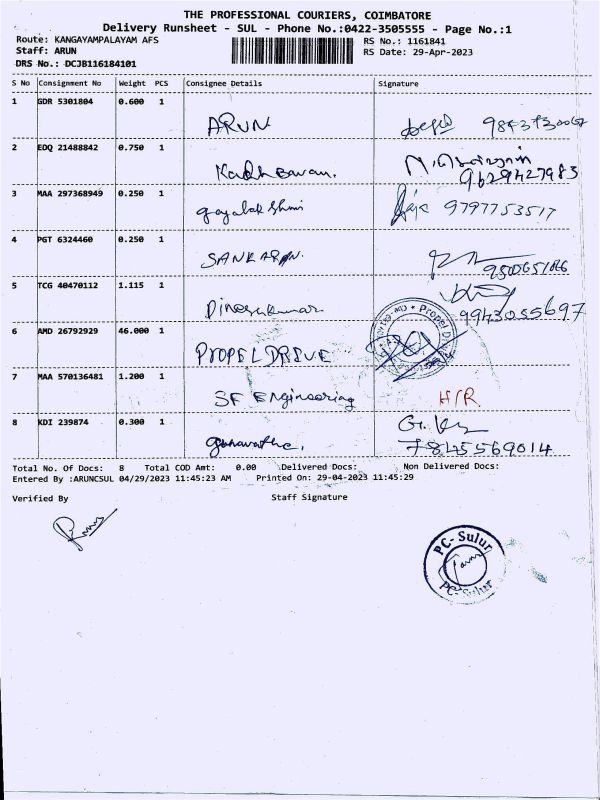 THE PROFESSIONAL COURIERS, COIMBATORE
Delivery Runsheet - SUL - Phone No.:0422-3505555 - Page No.:1
Route: KANGAYAMPALAYAM AFS RS No.: 1161841
Staff: ARUN RS Date: 29-Apr-2023
DRS No.: DCJB116184101
S No Consignment No Weight PCS Consignee Details Signature
1 GDR 5301804 0.600 1
ARUN
2 EDQ 21488842 0.750 1
9629427983
3 MAA 297368949 0.250 1
9797753517
4 PGT 6324460 0.250 1
SANKARAN.
5 TCG 40470112 1.115 1
Dineshkumar 9943055697
6 AMD 26792929 46.000 1
PROPEL DRIVE
7 MAA 570136481 1.200 1
SF Engineering H/R
8 KDI 239874 0.300 1
7845569014
Total No. Of Docs: 8 Total COD Amt: 0.00 Delivered Docs: Non Delivered Docs:
Entered By :ARUNCSUL 04/29/2023 11:45:23 AM Printed On: 29-04-2023 11:45:29
Verified By Staff Signature
PC- Sulur
PC-Sulur